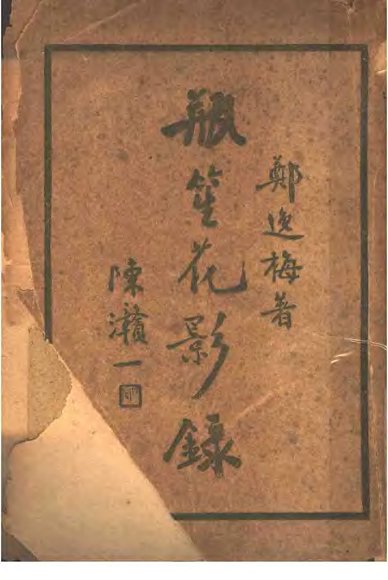 鄭逸梅著
瓶笙花影錄
陳瀨一